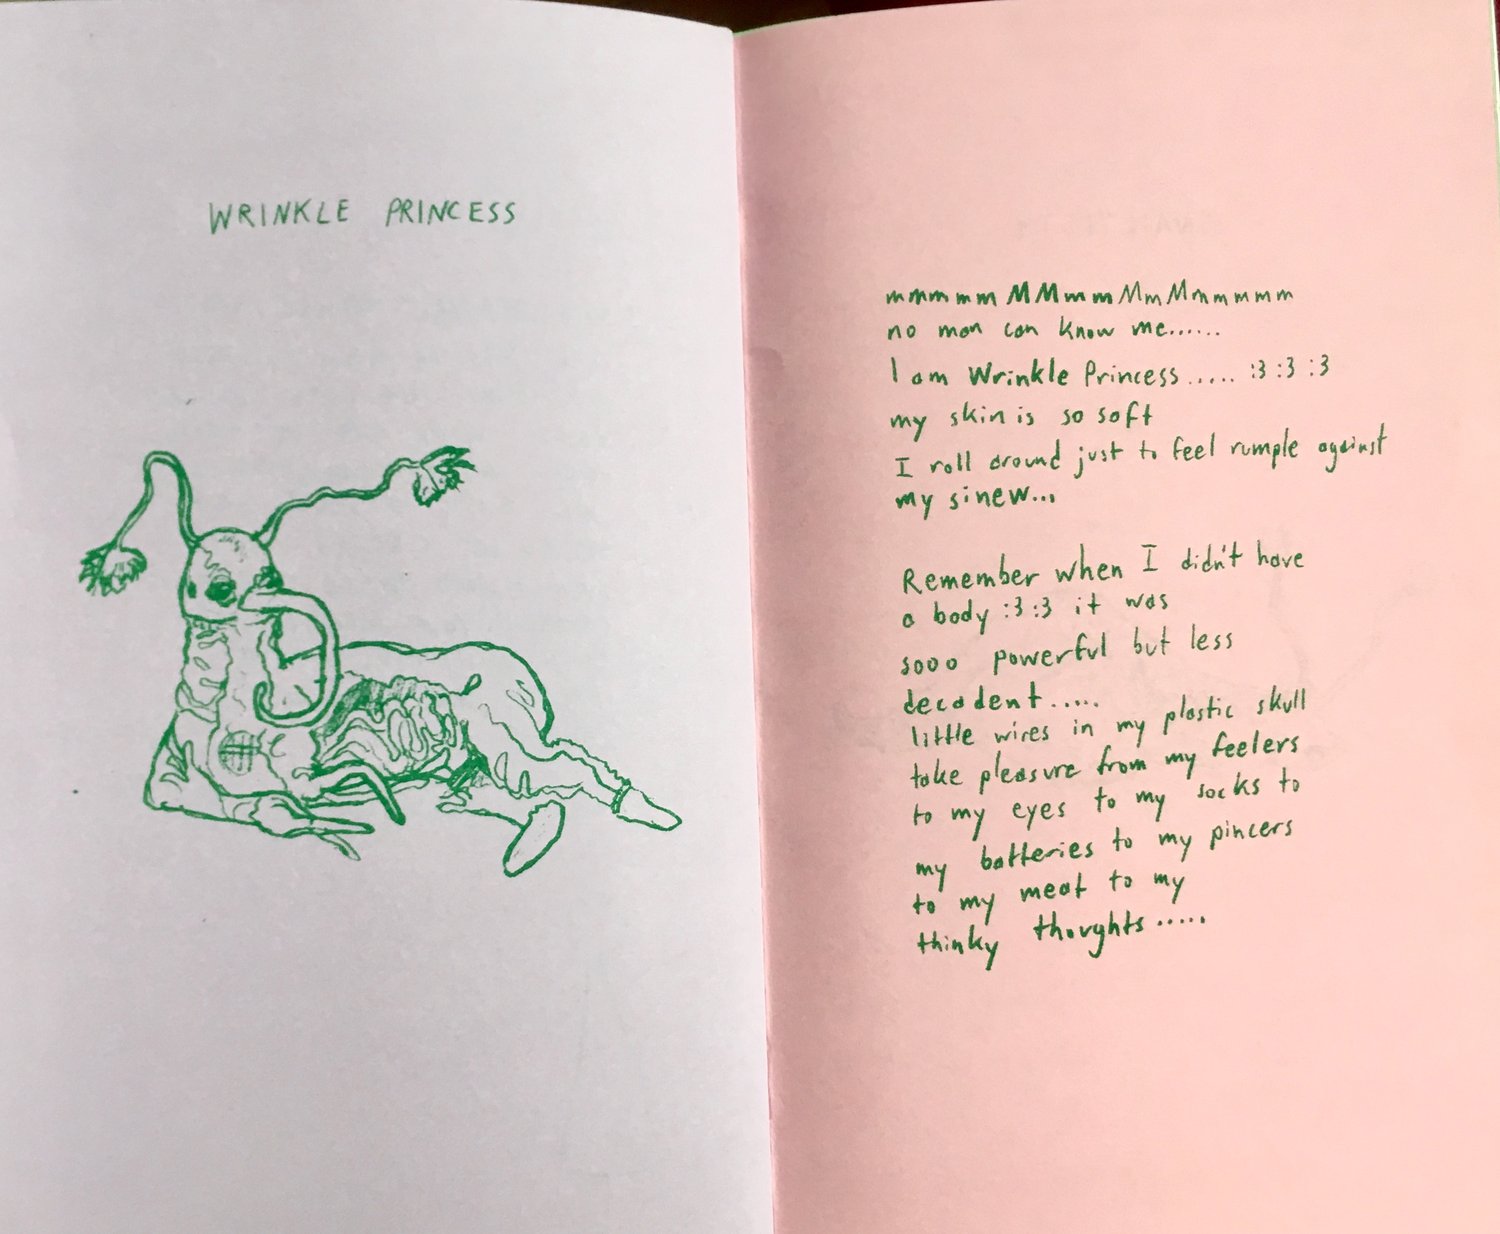 WRINKLE PRINCESS
mmmmm MMmmMmMmmmmm
no man can know me......
I am Wrinkle Princess..... :3 :3 :3
my skin is so soft
I roll around just to feel rumple against
my sinew...
Remember when I didn't have
a body :3 :3 it was
sooo powerful but less
decadent.....
little wires in my plastic skull
take pleasure from my feelers
to my eyes to my socks to
my batteries to my pincers
to my meat to my
thinky thoughts.....